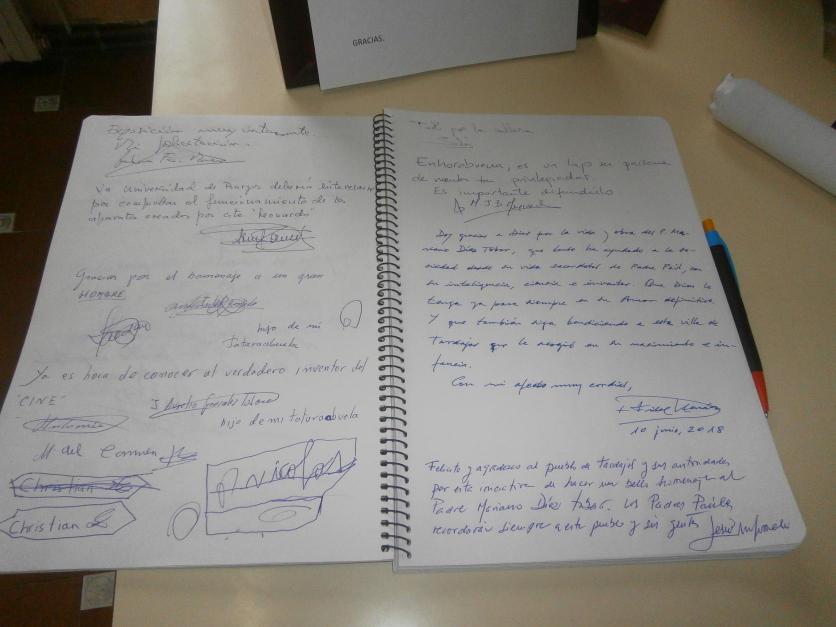 GRACIAS.
Exposición muy interesante.
La Universidad de Burgos debería interesarse
por comprobar el funcionamiento de los
aparatos creados por este "
Gracias por el homenaje a un gran
HOMBRE
hijo de mi
tatarabuela
Ya es hora de conocer al verdadero inventor del
"CINE"
J. Aurelio González
hijo de mi tatarabuela
Antonio
M. del Carmen
Christian
Christian
Nicolas
Todo por la cultura
Enhorabuena, es un lujo en
de
Es importante difundirlo
M. J. B.
Doy gracias a Dios por la vida y obra del P. Ma-
riano Díez Tobar, que tanto ha ayudado a la so-
ciedad desde su vida sacerdotal de Padre Paúl, con
su inteligencia, ciencia e inventos. Que Dios lo
tenga ya para siempre en su Amor definitivo.
Y que también siga bendiciendo a esta villa de
Tardajos que le acogió en su nacimiento e in-
fancia.
Con mi afecto muy cordial,
10 junio, 2018
Felicito y agradezco al pueblo de Tardajos y sus autoridades
por esta iniciativa de hacer un bello homenaje al
Padre Mariano Díez Tobar. Los Padres Paúles
recordarán siempre a este pueblo y sus gentes
Jesús